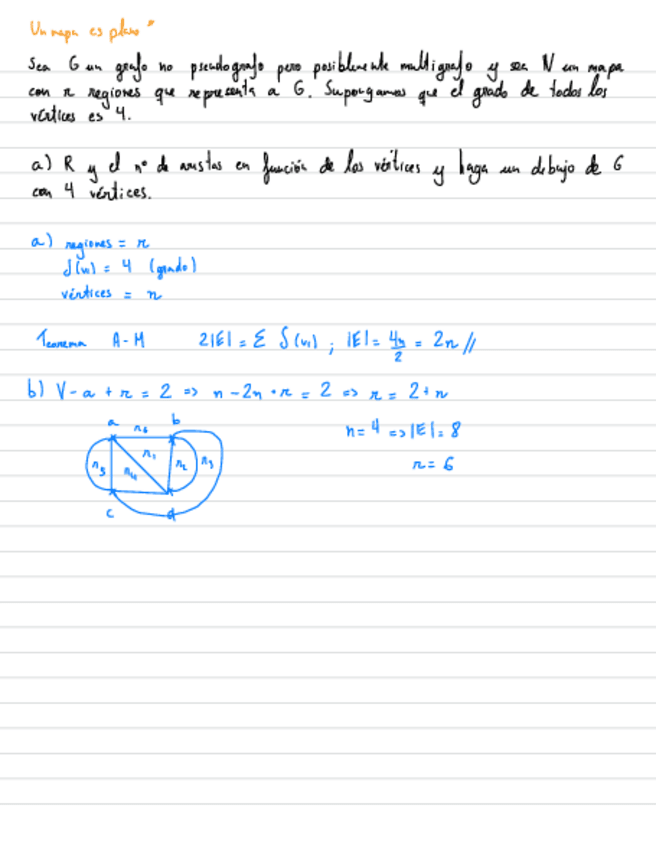 Un mapa es plano "
Sea G un grafo no pseudografo pero posiblemente multigrafo y sea N un mapa
con r regiones que representa a G. Supongamos que el grado de todos los
vértices es 4.
a) R y el nº de aristas en función de los vértices y haga un debujo de G
con 4 vértices.
a) regiones = r
δ(vi) = 4 (grado)
vértices = n
Teorema A-M 2|E| = Σ δ(vi) ; |E| = 4n/2 = 2n //
b) V - a + r = 2 => n - 2n + r = 2 => r = 2 + n
n = 4 => |E| = 8
r = 6
a r6 b
r1
r5 r4 r2 r3
c d